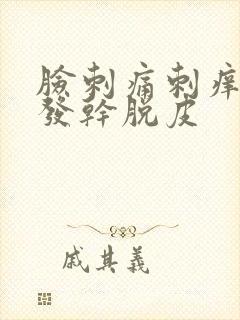 臉刺痛刺痒
發幹脫皮
戚其義